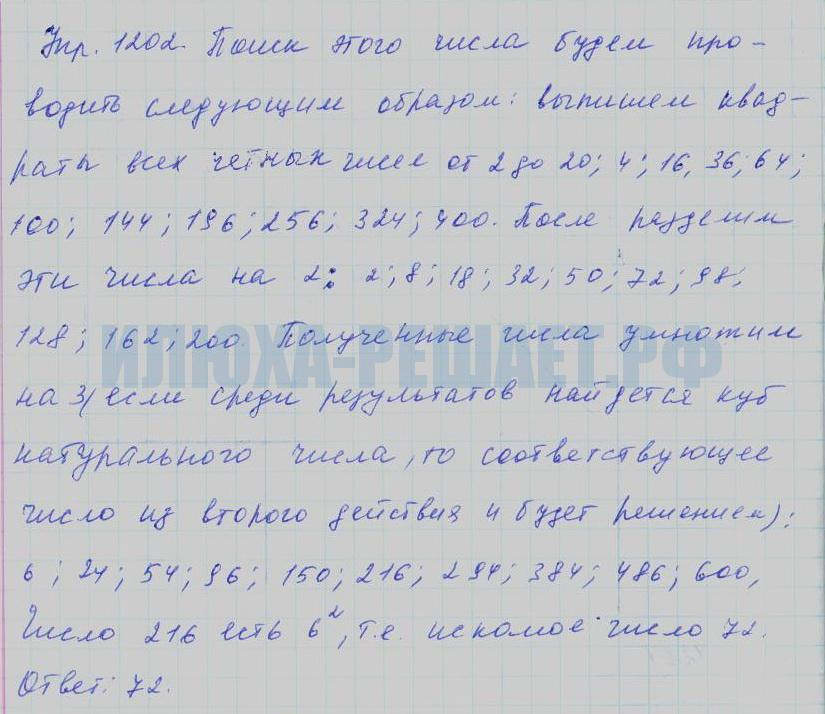 Упр. 1202. Поиск этого числа будем про-
водить следующим образом: выпишем квад-
раты всех четных чисел от 2 до 20; 4; 16, 36; 64;
100; 144; 196; 256; 324; 400. После разделим
эти числа на 2: 2; 8; 18; 32; 50; 72; 98;
128; 162; 200. Полученные числа умножим
ИЛЮХА-РЕШАЕТ.РФ
на 3 (если среди результатов найдется куб
натурального числа, то соответствующее
число из второго действия и будет решением):
6; 24; 54; 96; 150; 216; 294; 384; 486; 600,
Число 216 есть 6², т.е. искомое число 72.
Ответ: 72.